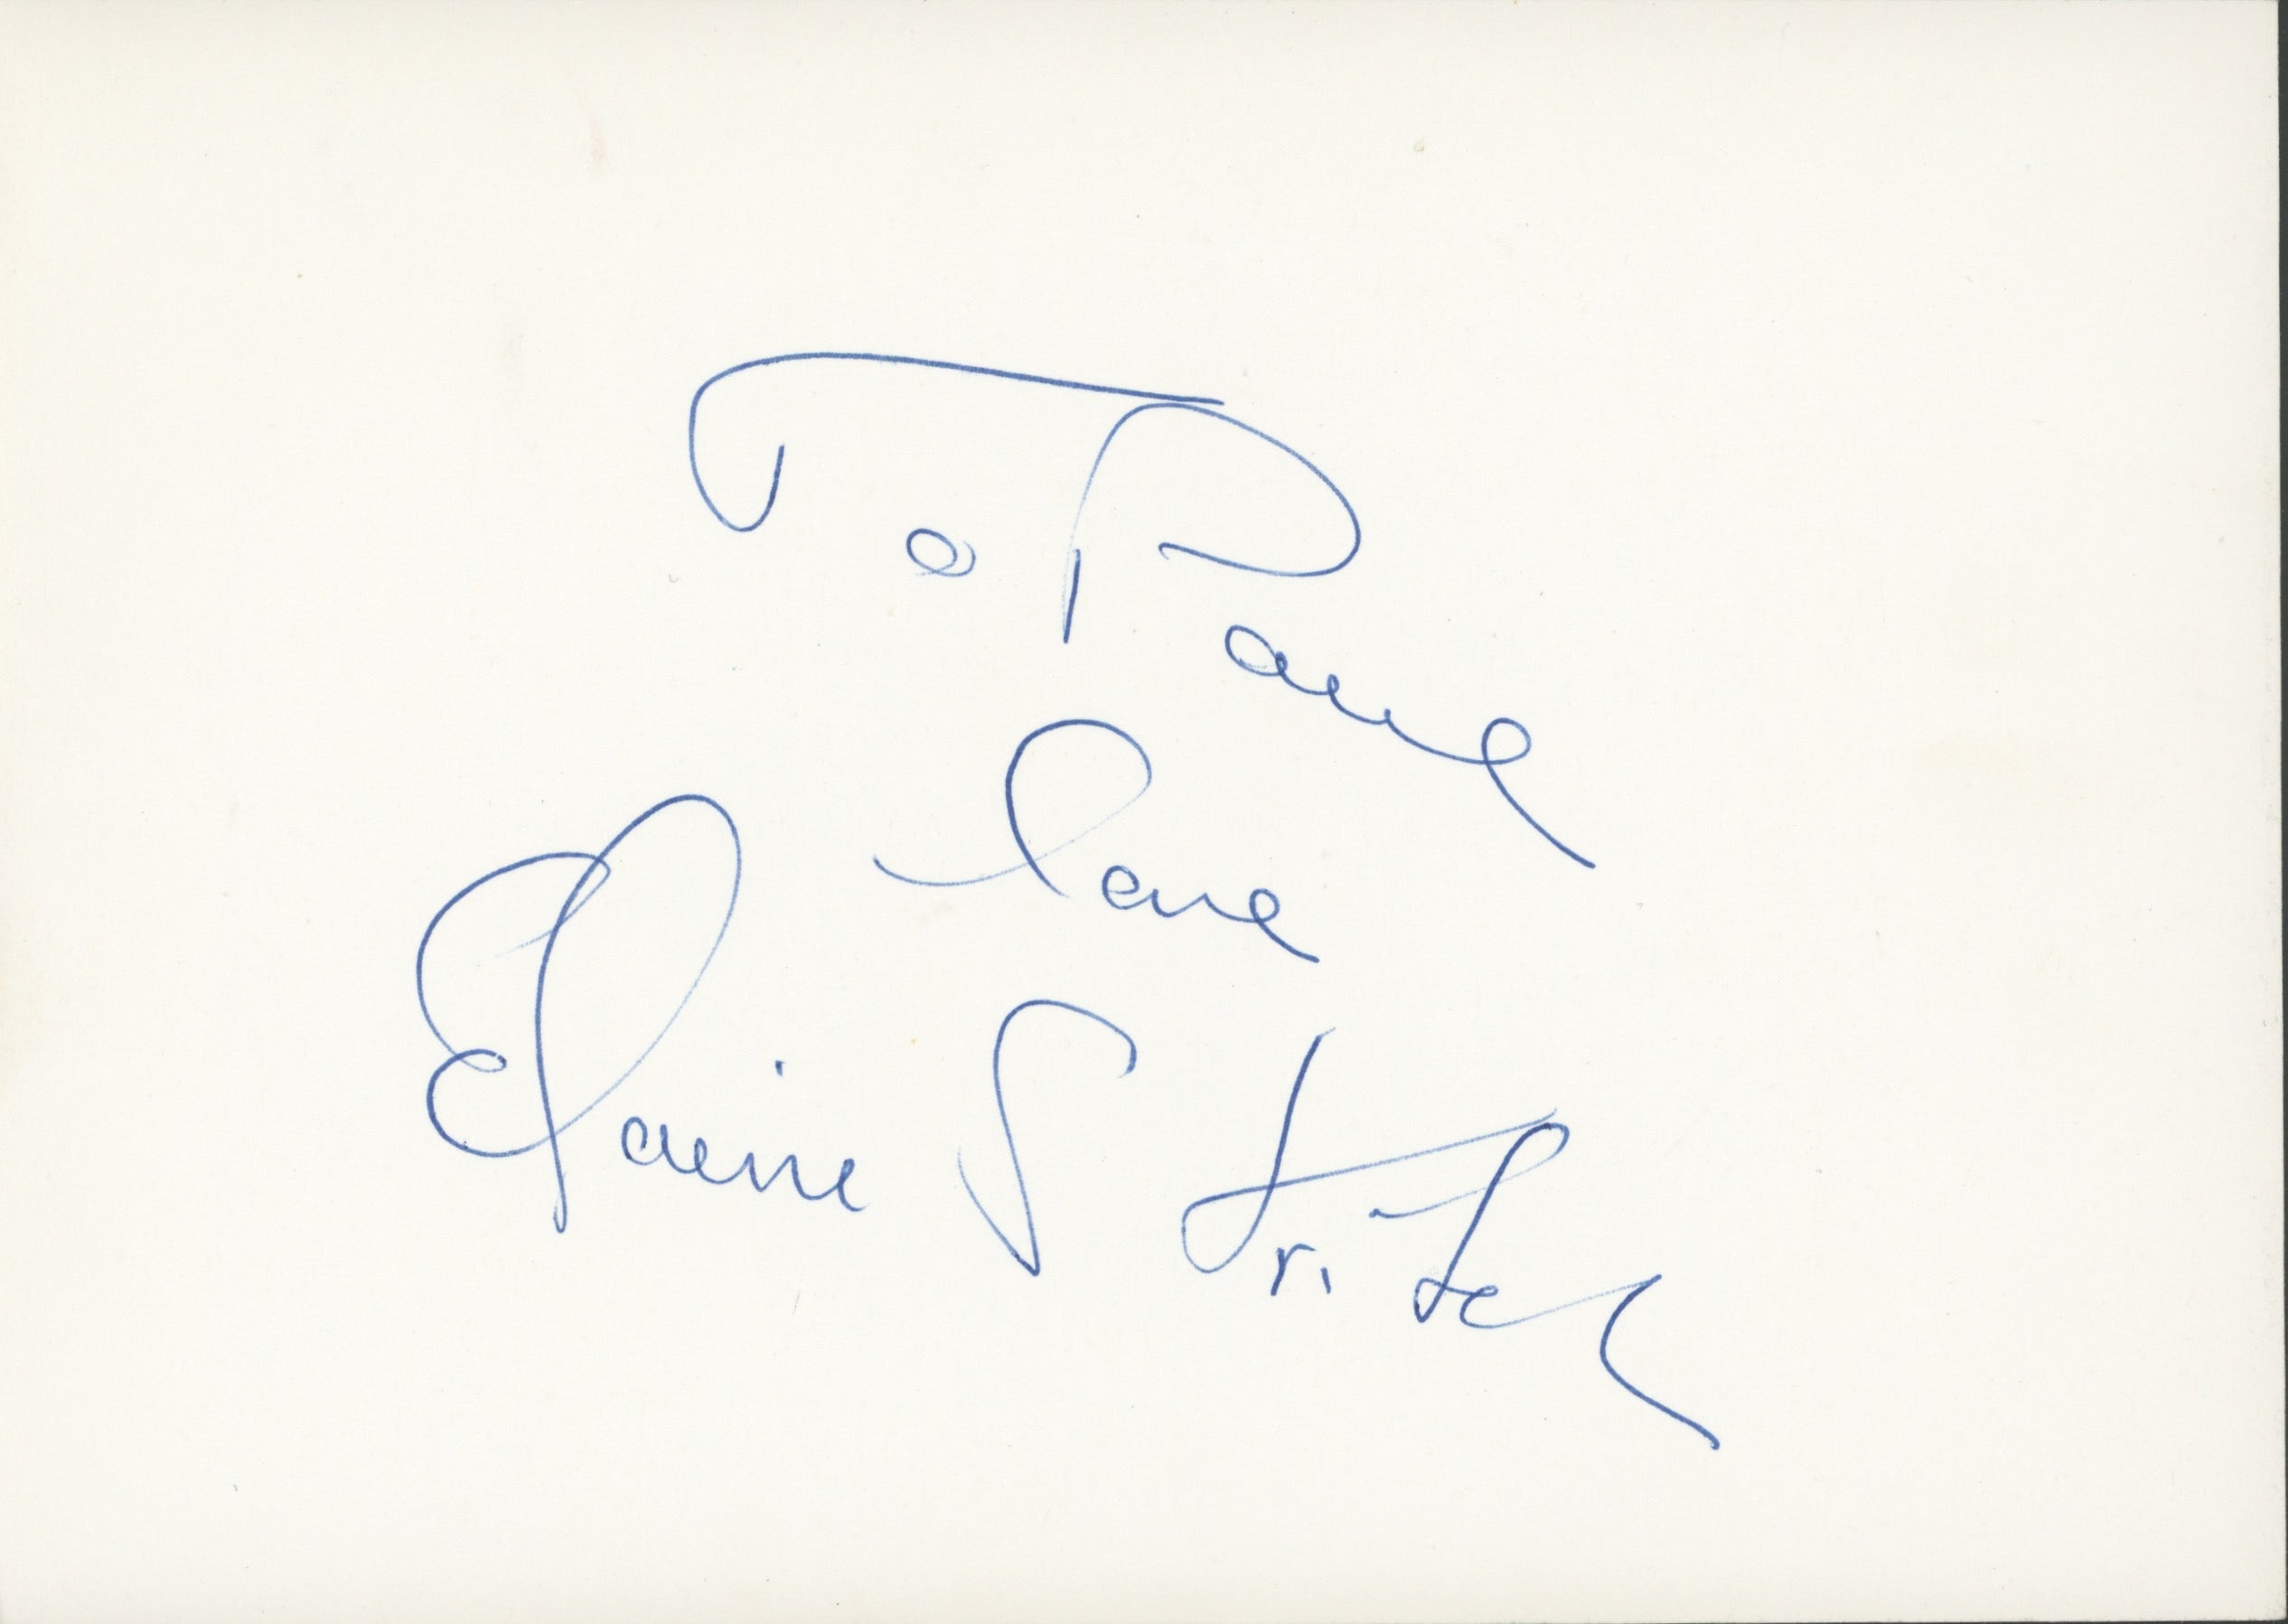 To Paul
love
Elaine Stritch